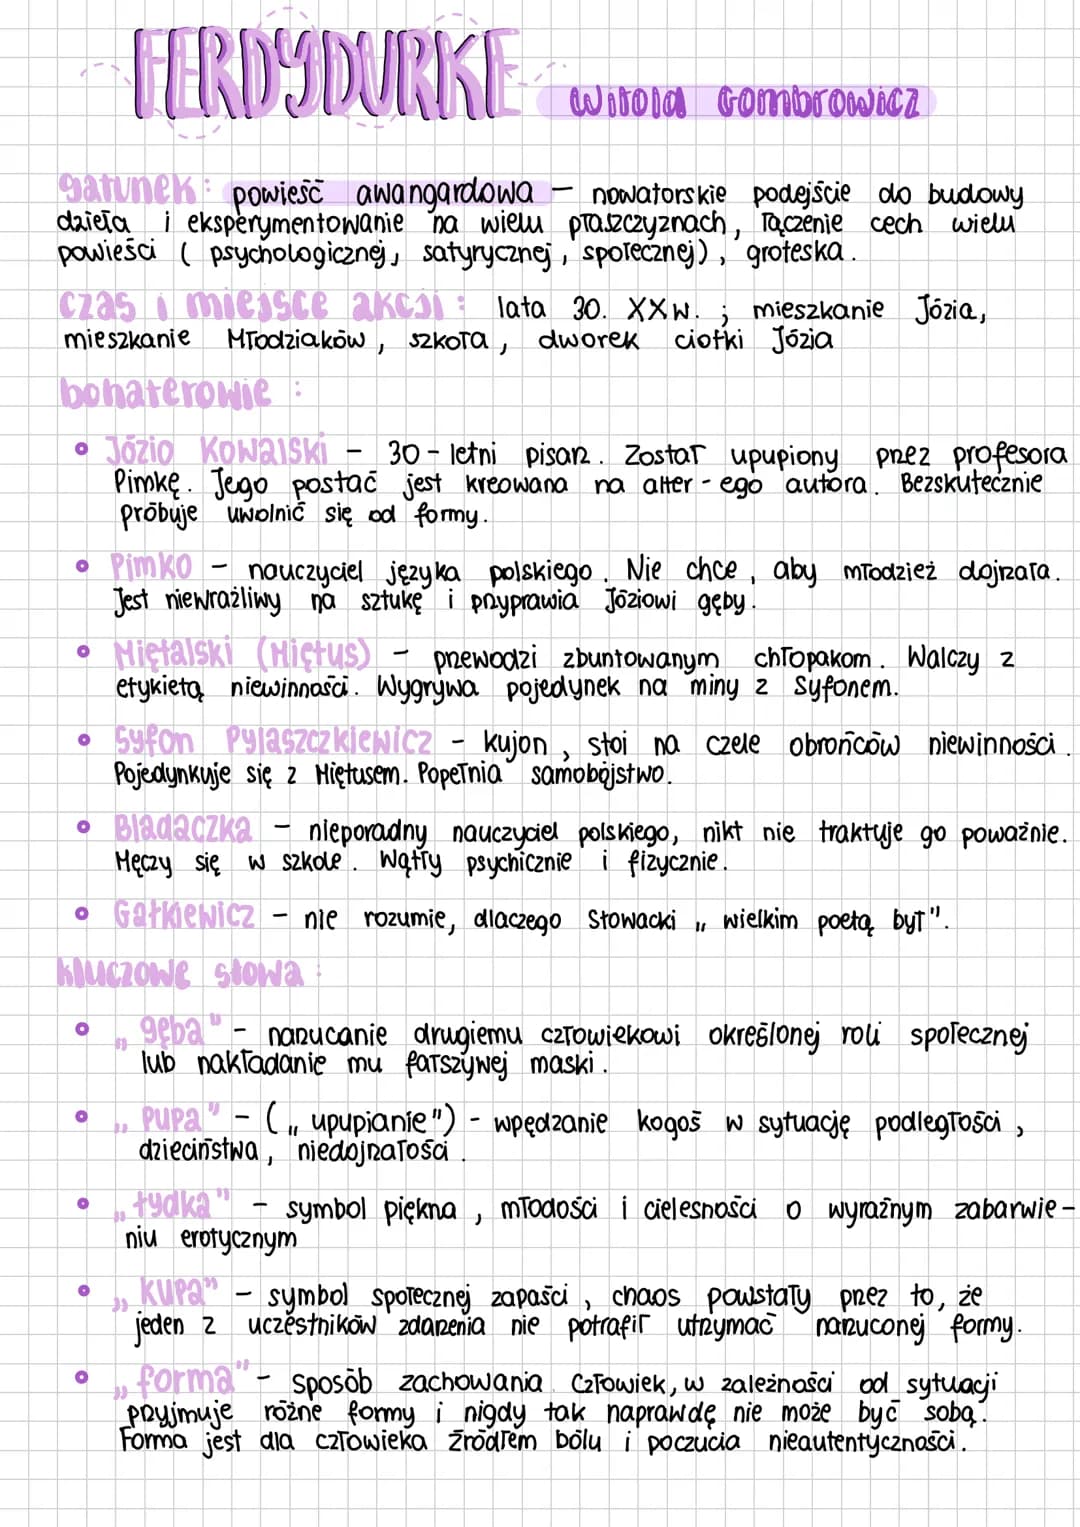 FERDYDURKE
Witold Gombrowicz
gatunek: powieść awangardowa – nowatorskie podejście do budowy
dzieła i eksperymentowanie na wielu płaszczyznach, łączenie cech wielu
powieści ( psychologicznej, satyrycznej, społecznej), groteska.
czas i miejsce akcji: lata 30. XXw. ; mieszkanie Józia,
mieszkanie Młodziaków, szkoła, dworek ciotki Józia
bohaterowie :
• Józio Kowalski – 30-letni pisarz. Został upupiony przez profesora
Pimkę. Jego postać jest kreowana na alter-ego autora. Bezskutecznie
próbuje uwolnić się od formy.
• Pimko – nauczyciel języka polskiego. Nie chce, aby młodzież dojrzała.
Jest niewrażliwy na sztukę i przyprawia Józiowi gęby.
• Miętalski (Miętus) – przewodzi zbuntowanym chłopakom. Walczy z
etykietą niewinności. Wygrywa pojedynek na miny z Syfonem.
• Syfon Pylaszczkiewicz – kujon, stoi na czele obrońców niewinności.
Pojedynkuje się z Miętusem. Popełnia samobójstwo.
• Bladaczka – nieporadny nauczyciel polskiego, nikt nie traktuje go poważnie.
Męczy się w szkole. Wątły psychicznie i fizycznie.
• Gałkiewicz – nie rozumie, dlaczego Słowacki „wielkim poetą był".
kluczowe słowa :
• „gęba" – narzucanie drugiemu człowiekowi określonej roli społecznej
lub nakładanie mu fałszywej maski.
• „pupa" – („upupianie") – wpędzanie kogoś w sytuację podległości,
dzieciństwa, niedojrzałości.
• „łydka" – symbol piękna, młodości i cielesności o wyraźnym zabarwie-
niu erotycznym
• „kupa" – symbol społecznej zapaści, chaos powstały przez to, że
jeden z uczestników zdarzenia nie potrafił utrzymać narzuconej formy.
• „forma" – sposób zachowania. Człowiek, w zależności od sytuacji
przyjmuje różne formy i nigdy tak naprawdę nie może być sobą.
Forma jest dla człowieka źródłem bólu i poczucia nieautentyczności.